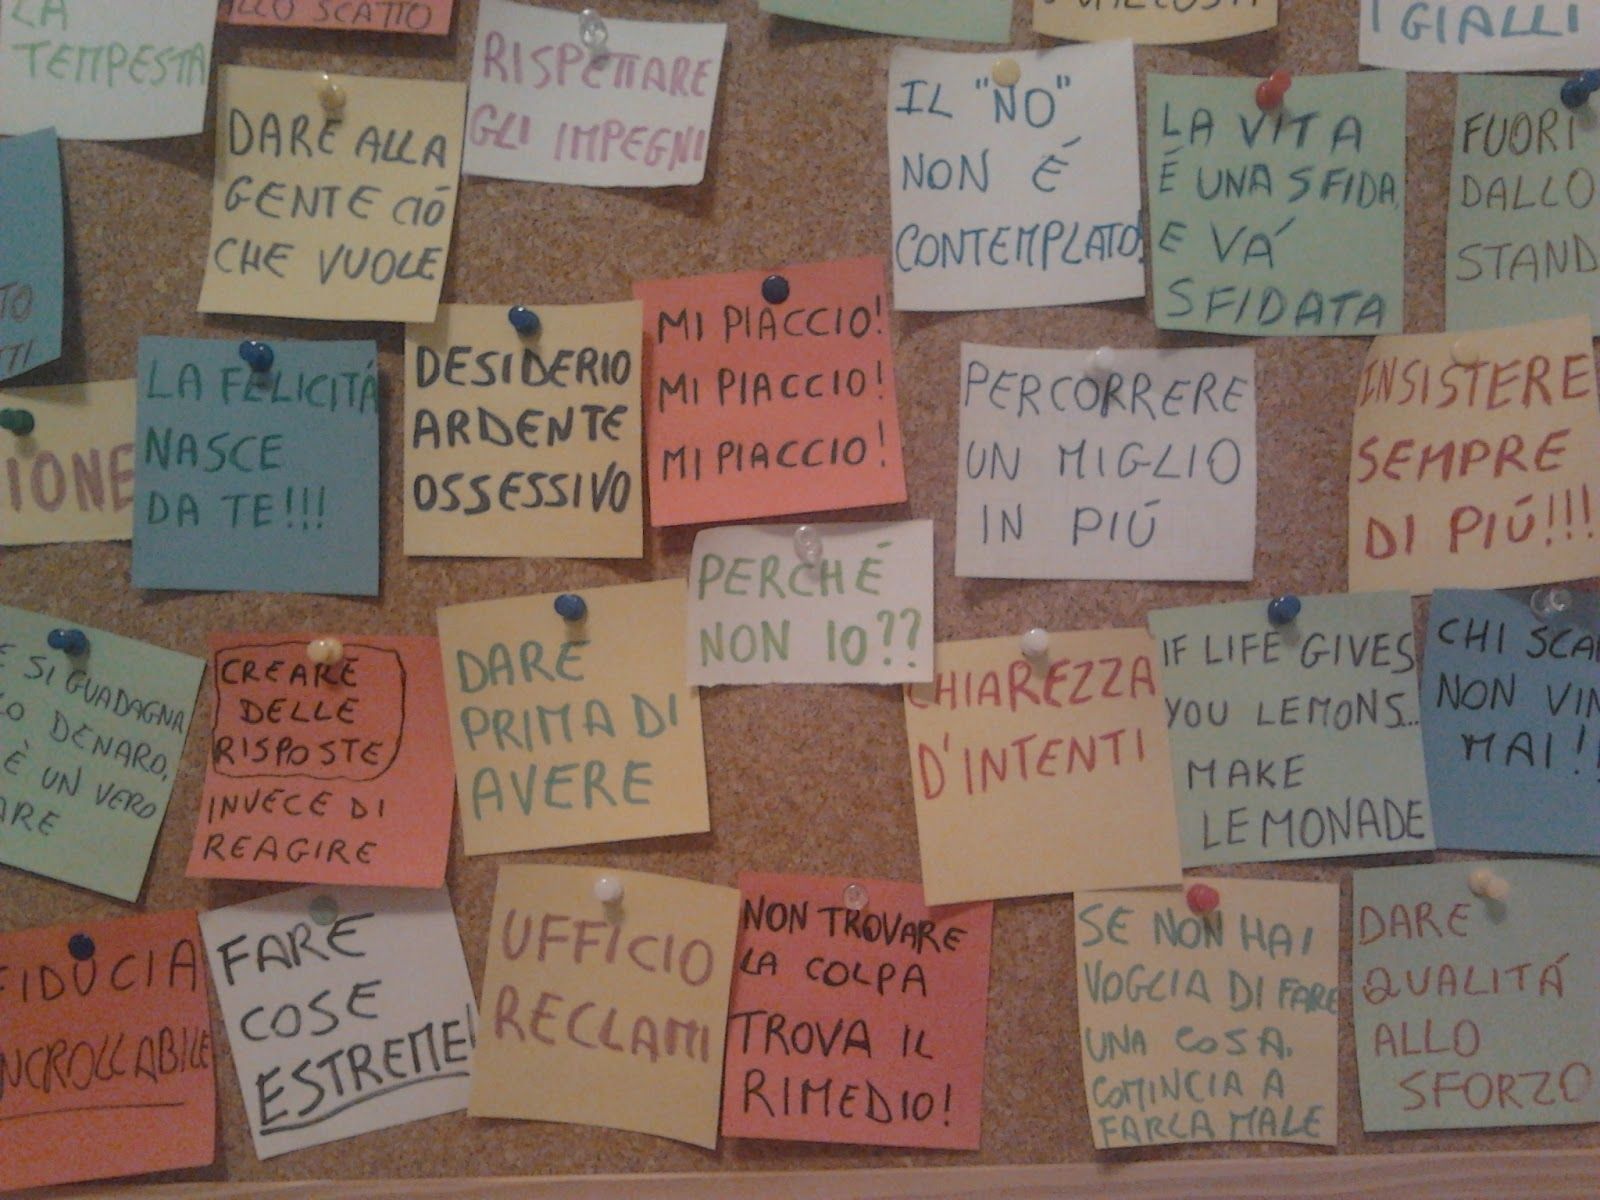 LA
TEMPESTA
ALLO SCATTO
RISPETTARE
GLI IMPEGNI
I GIALLI
DARE ALLA
GENTE CIÓ
CHE VUOLE
IL "NO"
NON É
CONTEMPLATO!
LA VITA
É UNA SFIDA,
E VÁ
SFIDATA
FUORI
DALLO
STAND
LA FELICITÁ
NASCE
DA TE!!!
DESIDERIO
ARDENTE
OSSESSIVO
MI PIACCIO!
MI PIACCIO!
MI PIACCIO!
PERCORRERE
UN MIGLIO
IN PIÚ
INSISTERE
SEMPRE
DI PIÚ!!!
IONE
PERCHÉ
NON IO??
SI GUADAGNA
DENARO,
È UN VERO
ARE
CREARE
DELLE
RISPOSTE
INVECE DI
REAGIRE
DARE
PRIMA DI
AVERE
CHIAREZZA
D'INTENTI
IF LIFE GIVES
YOU LEMONS...
MAKE
LEMONADE
CHI SCA
NON VIN
MAI!!
FIDUCIA
INCROLLABILE
FARE
COSE
ESTREME!
UFFICIO
RECLAMI
NON TROVARE
LA COLPA
TROVA IL
RIMEDIO!
SE NON HAI
VOGLIA DI FARE
UNA COSA.
COMINCIA A
FARLA MALE
DARE
QUALITÁ
ALLO
SFORZO